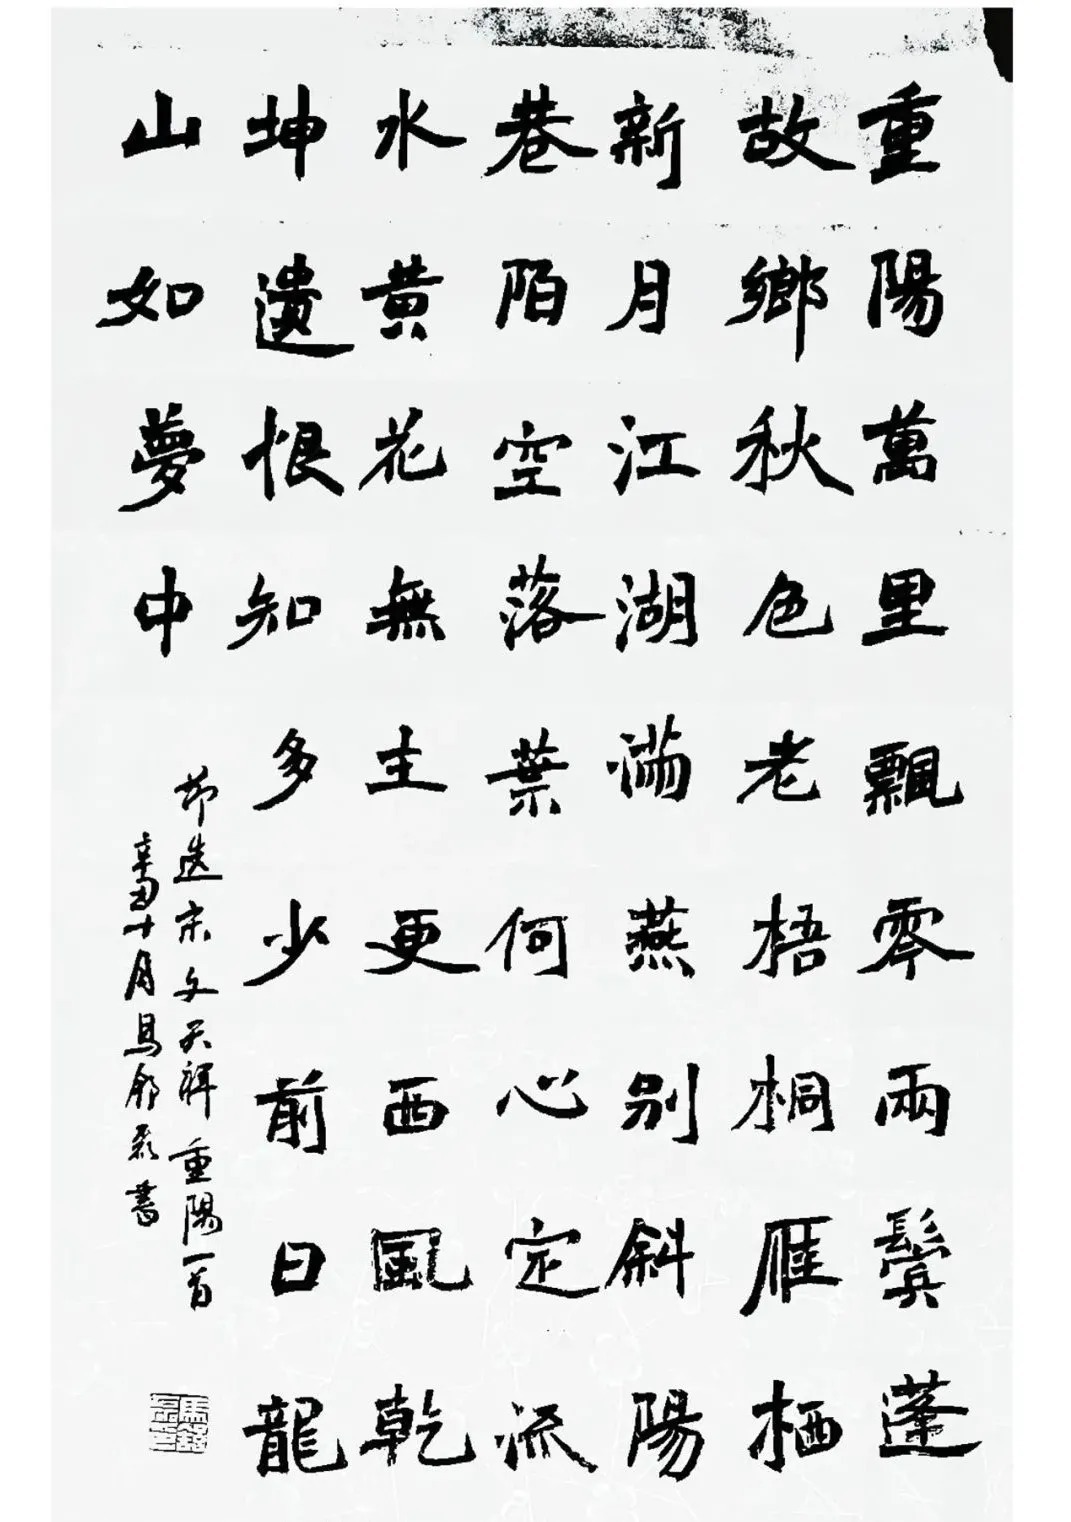 重陽萬里飄零兩鬢蓬
故鄉秋色老梧桐雁栖
新月江湖滿燕别斜陽
巷陌空落葉何心定流
水黄花無主更西風乾
坤遺恨知多少前日龍
山如夢中
節選宋文天祥重陽一首
辛酉十月馬 書